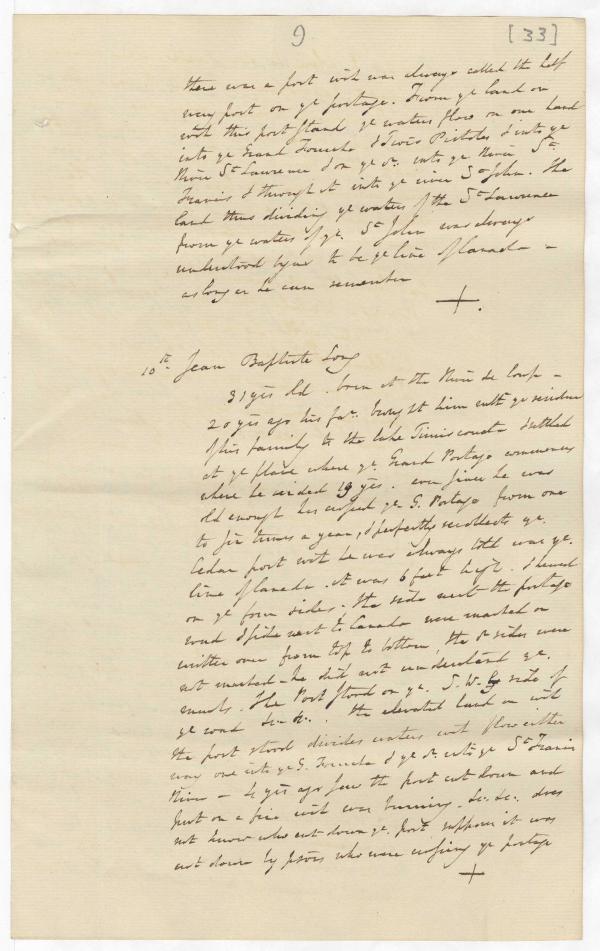 9 [33]
there was a post wch was always called the half
way post on ye portage. From ye land on
wch this post stand ye waters flow on one hand
into ye Grand Fourche & Trois Pistoles & into ye
River St Lawrence & on ye or. into ye River St.
Francis & through it into ye river St John. The
land thus dividing ye waters of the St Lawrence
from ye waters of ye. St John was always
understood by me to be ye line of Canada –
as long as he can remember
+.
10th. Jean Baptiste Long
31 yrs old. born at the River de Loup –
20 yrs ago his far. brought him with ye residue
of his family to the lake Timiscouata & settled
at ye place where ye. Grand Portage commences
where he resided 19 yrs. ever since he was
old enough has crossed ye G. Portage from one
to six times a year, & perfectly recollects ye.
Cedar post wch he was always told was ye.
line of Canada. it was 6 feet high. & hewed
on ye four sides. The side next the portage
road & side next to Canada were marked or
written over from top to bottom, the or sides were
not marked – he did not understand ye.
marks. The Post stood on ye. S.W.ly side of
ye road &c &c. The elevated land on wch
the post stood divides waters wch flow either
way one into ye G. Fourche & ye or. into ye St Francis
River – 4 yrs ago saw the post cut down and
put on a fire wch was burning. &c. &c. does
not know who cut down ye. post suppose it was
cut down by psons who were crossing ye portage
+